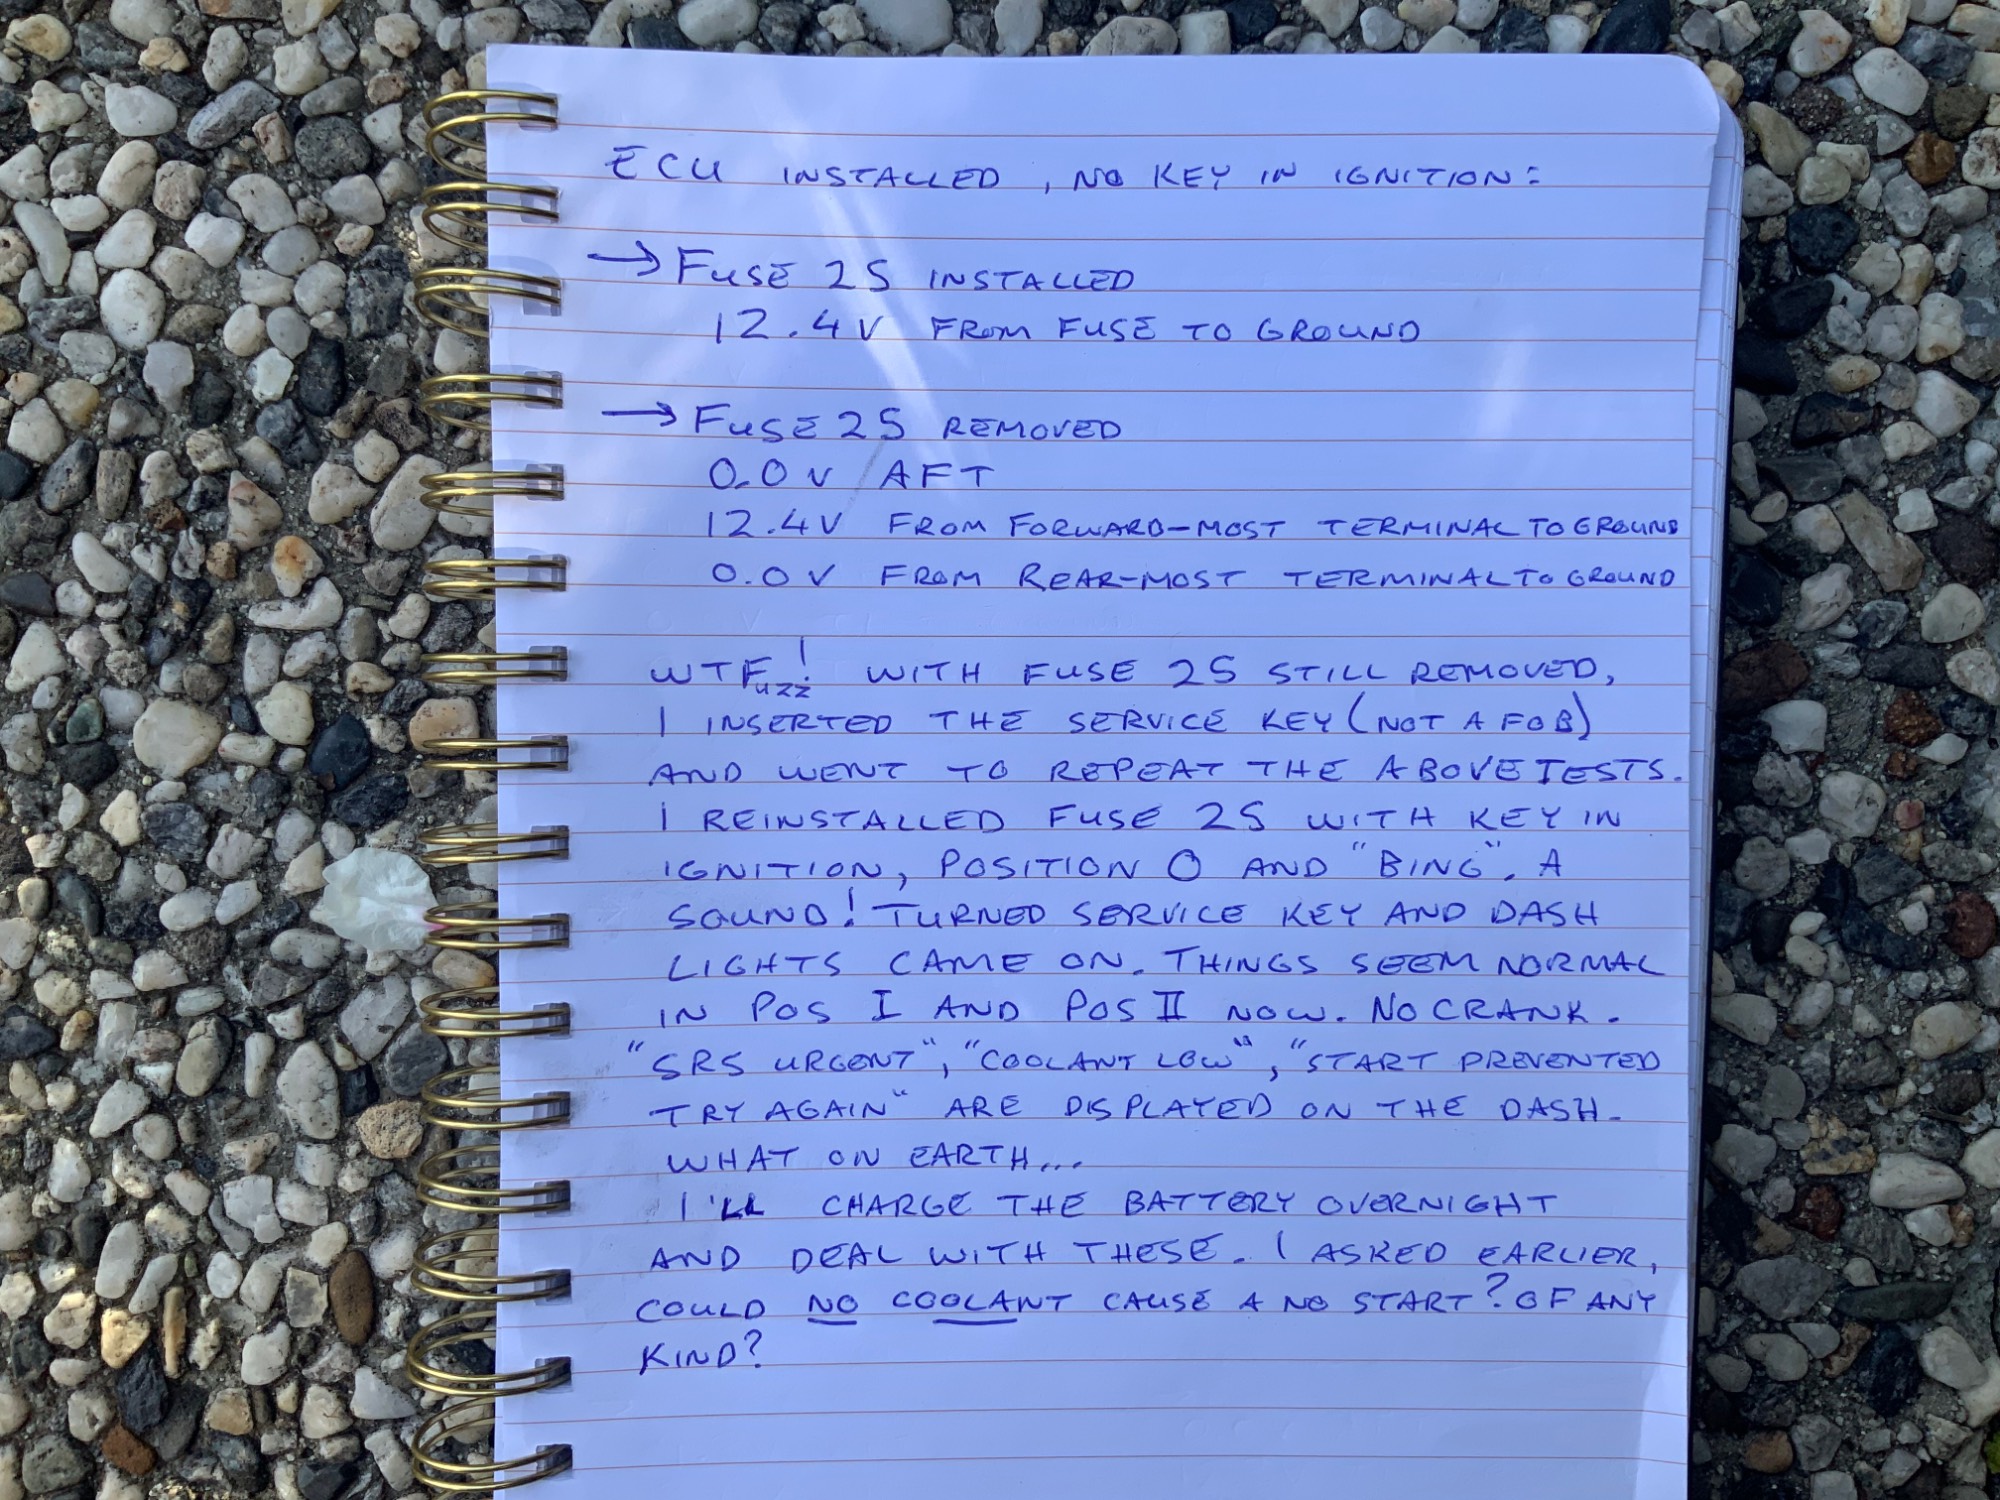 ECU INSTALLED, NO KEY IN IGNITION:
→ FUSE 25 INSTALLED
12.4V FROM FUSE TO GROUND
→ FUSE 25 REMOVED
0.0V AFT
12.4V FROM FORWARD-MOST TERMINAL TO GROUND
0.0V FROM REAR-MOST TERMINAL TO GROUND
WTFuzz! WITH FUSE 25 STILL REMOVED,
I INSERTED THE SERVICE KEY (NOT A FOB)
AND WENT TO REPEAT THE ABOVE TESTS.
I REINSTALLED FUSE 25 WITH KEY IN
IGNITION, POSITION 0 AND "BING". A
SOUND! TURNED SERVICE KEY AND DASH
LIGHTS CAME ON. THINGS SEEM NORMAL
IN POS I AND POS II NOW. NO CRANK.
"SRS URGENT", "COOLANT LOW", "START PREVENTED
TRY AGAIN" ARE DISPLAYED ON THE DASH.
WHAT ON EARTH...
I'LL CHARGE THE BATTERY OVERNIGHT
AND DEAL WITH THESE. I ASKED EARLIER,
COULD NO COOLANT CAUSE A NO START? OF ANY
KIND?